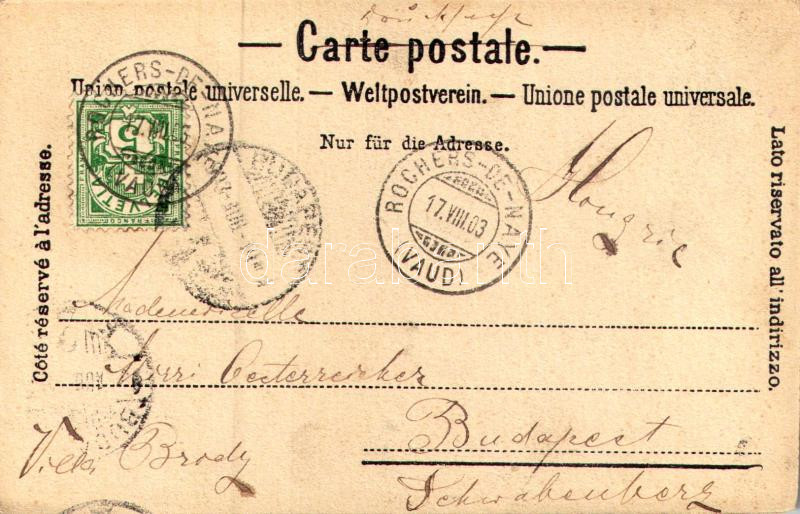 Drucksache
— Carte postale. —
Union postale universelle. — Weltpostverein. — Unione postale universale.
Nur für die Adresse.
Côté réservé à l'adresse.
Lato riservato all' indirizzo.
ROCHERS-DE-NAYE
(VAUD)
ROCHERS-DE-NAYE
17.VIII.03
(VAUD)
HELVETIA
FRANCO
5
darabanth
Hongrie
Mademoiselle
Mirri Oesterreicher
Villa Brody
Budapest
Schwabenberg